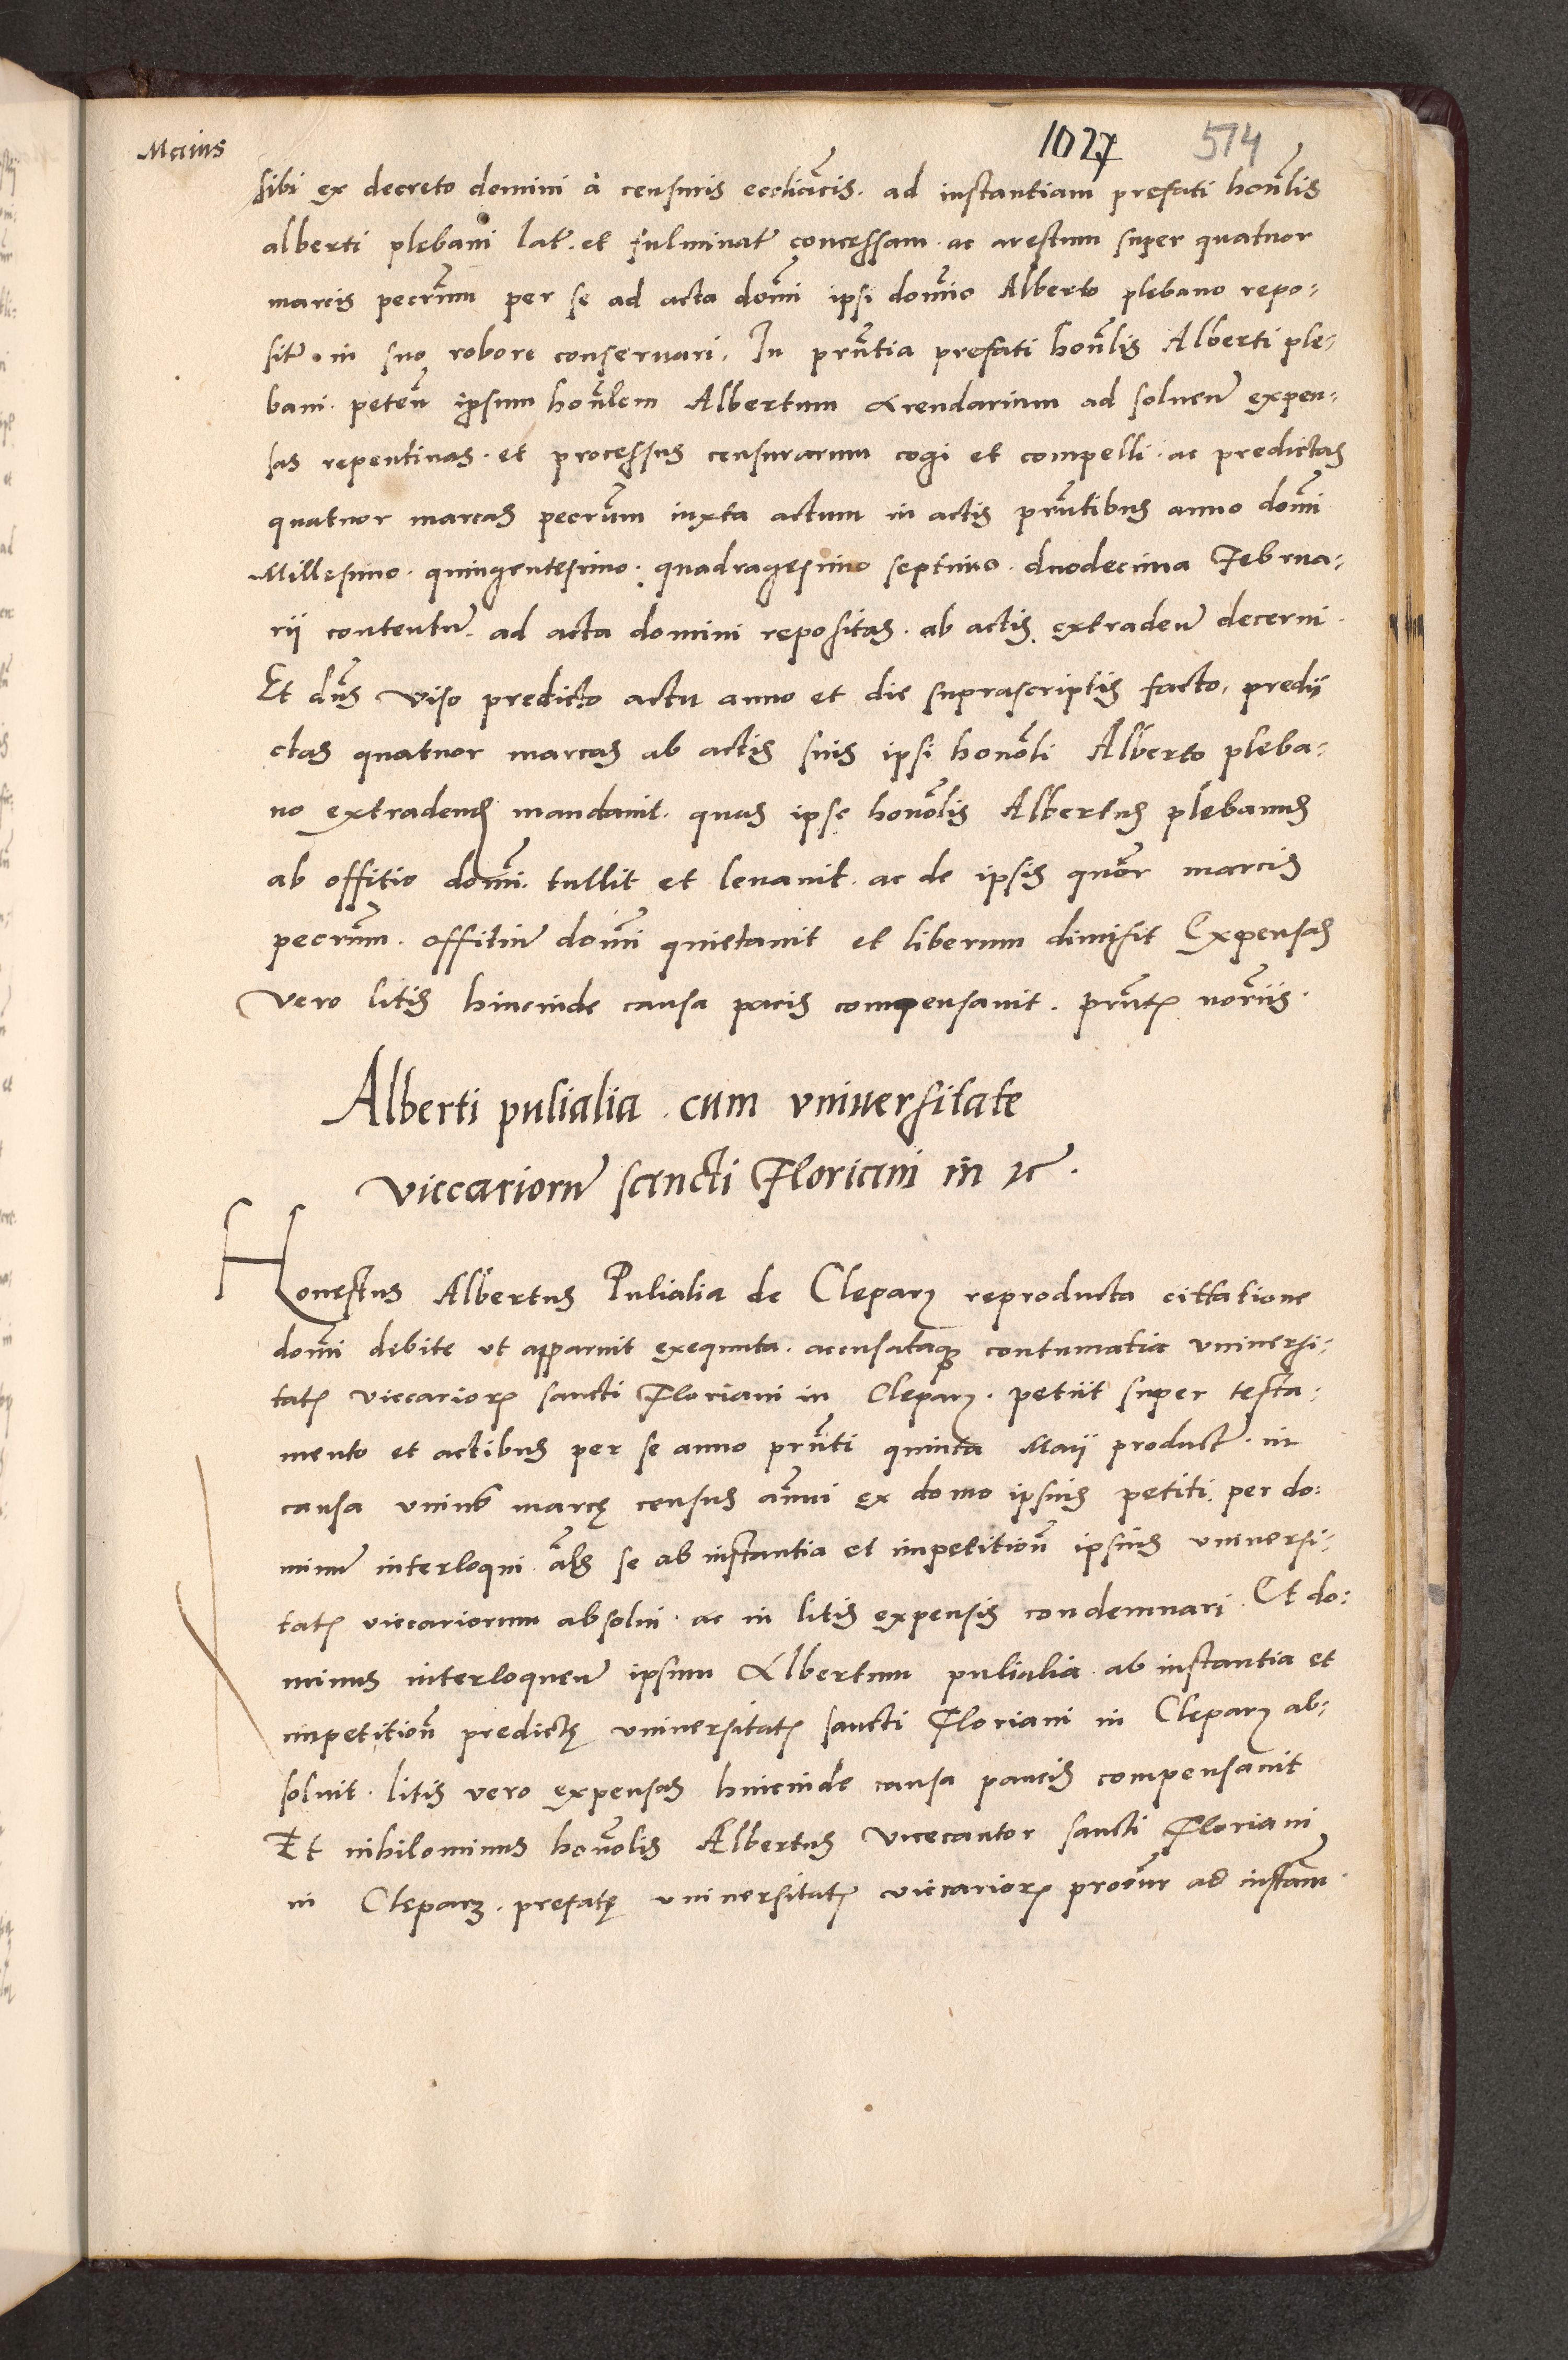 Maius
1027 574
sibi ex decreto domini à censuris ecclesiãcis. ad instantiam prefati honñlis
alberti plebani lat̃. et fulminat̃ concessam. ac arestum super quatuor
marcis pecuñm per se ad acta domñi ipsi domño Alberto plebano repo-
sit̃. in suo robore conseruari. In prñtia prefati honñlis Alberti ple-
bani. peteñ ipsum honñlem Albertum Arendarium ad soluen̄ expen-
sas repentinas. et processus censurarum cogi et compelli. ac predictas
quatuor marcas pecuñm iuxta actum in actis prñtibus anno domñi
Millesimo. quingentesimo. quadragesimo septimo. duodecima Februa-
rij contentum̄. ad acta domini repositas. ab actis extraden̄ decerni.
Et dñs viso predicto actu anno et die suprascriptis facto. predij
ctas quatuor marcas ab actis suis ipsi honõli Alberto pleba-
no extradendas mandauit. quas ipse honõlis Albertus plebanus
ab offitio domñi. tullit et leuauit. ac de ipsis quõr marcis
pecuñm. offitium̄ domñi quietauit et liberum dimisit Expensas
vero litis hincinde causa pacis compensauit. prñtꝭ noñriis.
Alberti pulialia. cum vniuersitate
viccariorum̄ sancti Floriani in ꝛc̃.
Honestus Albertus Pulialia de Cleparz reproducta cittatione
domñi debite vt apparuit exequuta. accusataqꝫ contumatia vniuersi-
tatꝭ viccariorꝭ sancti Floriani in Cleparz. petiit super testa-
mento et actibus per se anno prñti quinta Maij product̃. in
causa vnius marcę census añnui ex domo ipsius petiti. per do-
minum̄ interloqui. als̃ se ab instantia et impetitioñ ipsius vniuersi-
tatꝭ viccariorum absolui. ac in litis expensis condemnari. Et do-
minus interloquen̄ ipsum Albertum pulialia ab instantia et
impetitioñ predictę vniuersitatꝭ sancti Floriani in Cleparz ab-
soluit. litis vero expensas hincinde causa paucis compensauit
Et nihilominus honõlis Albertus vicecantor sancti Floriani
in Cleparz. prefatę vniuersitatꝭ viccariorꝭ procur̃ ad instam̃.